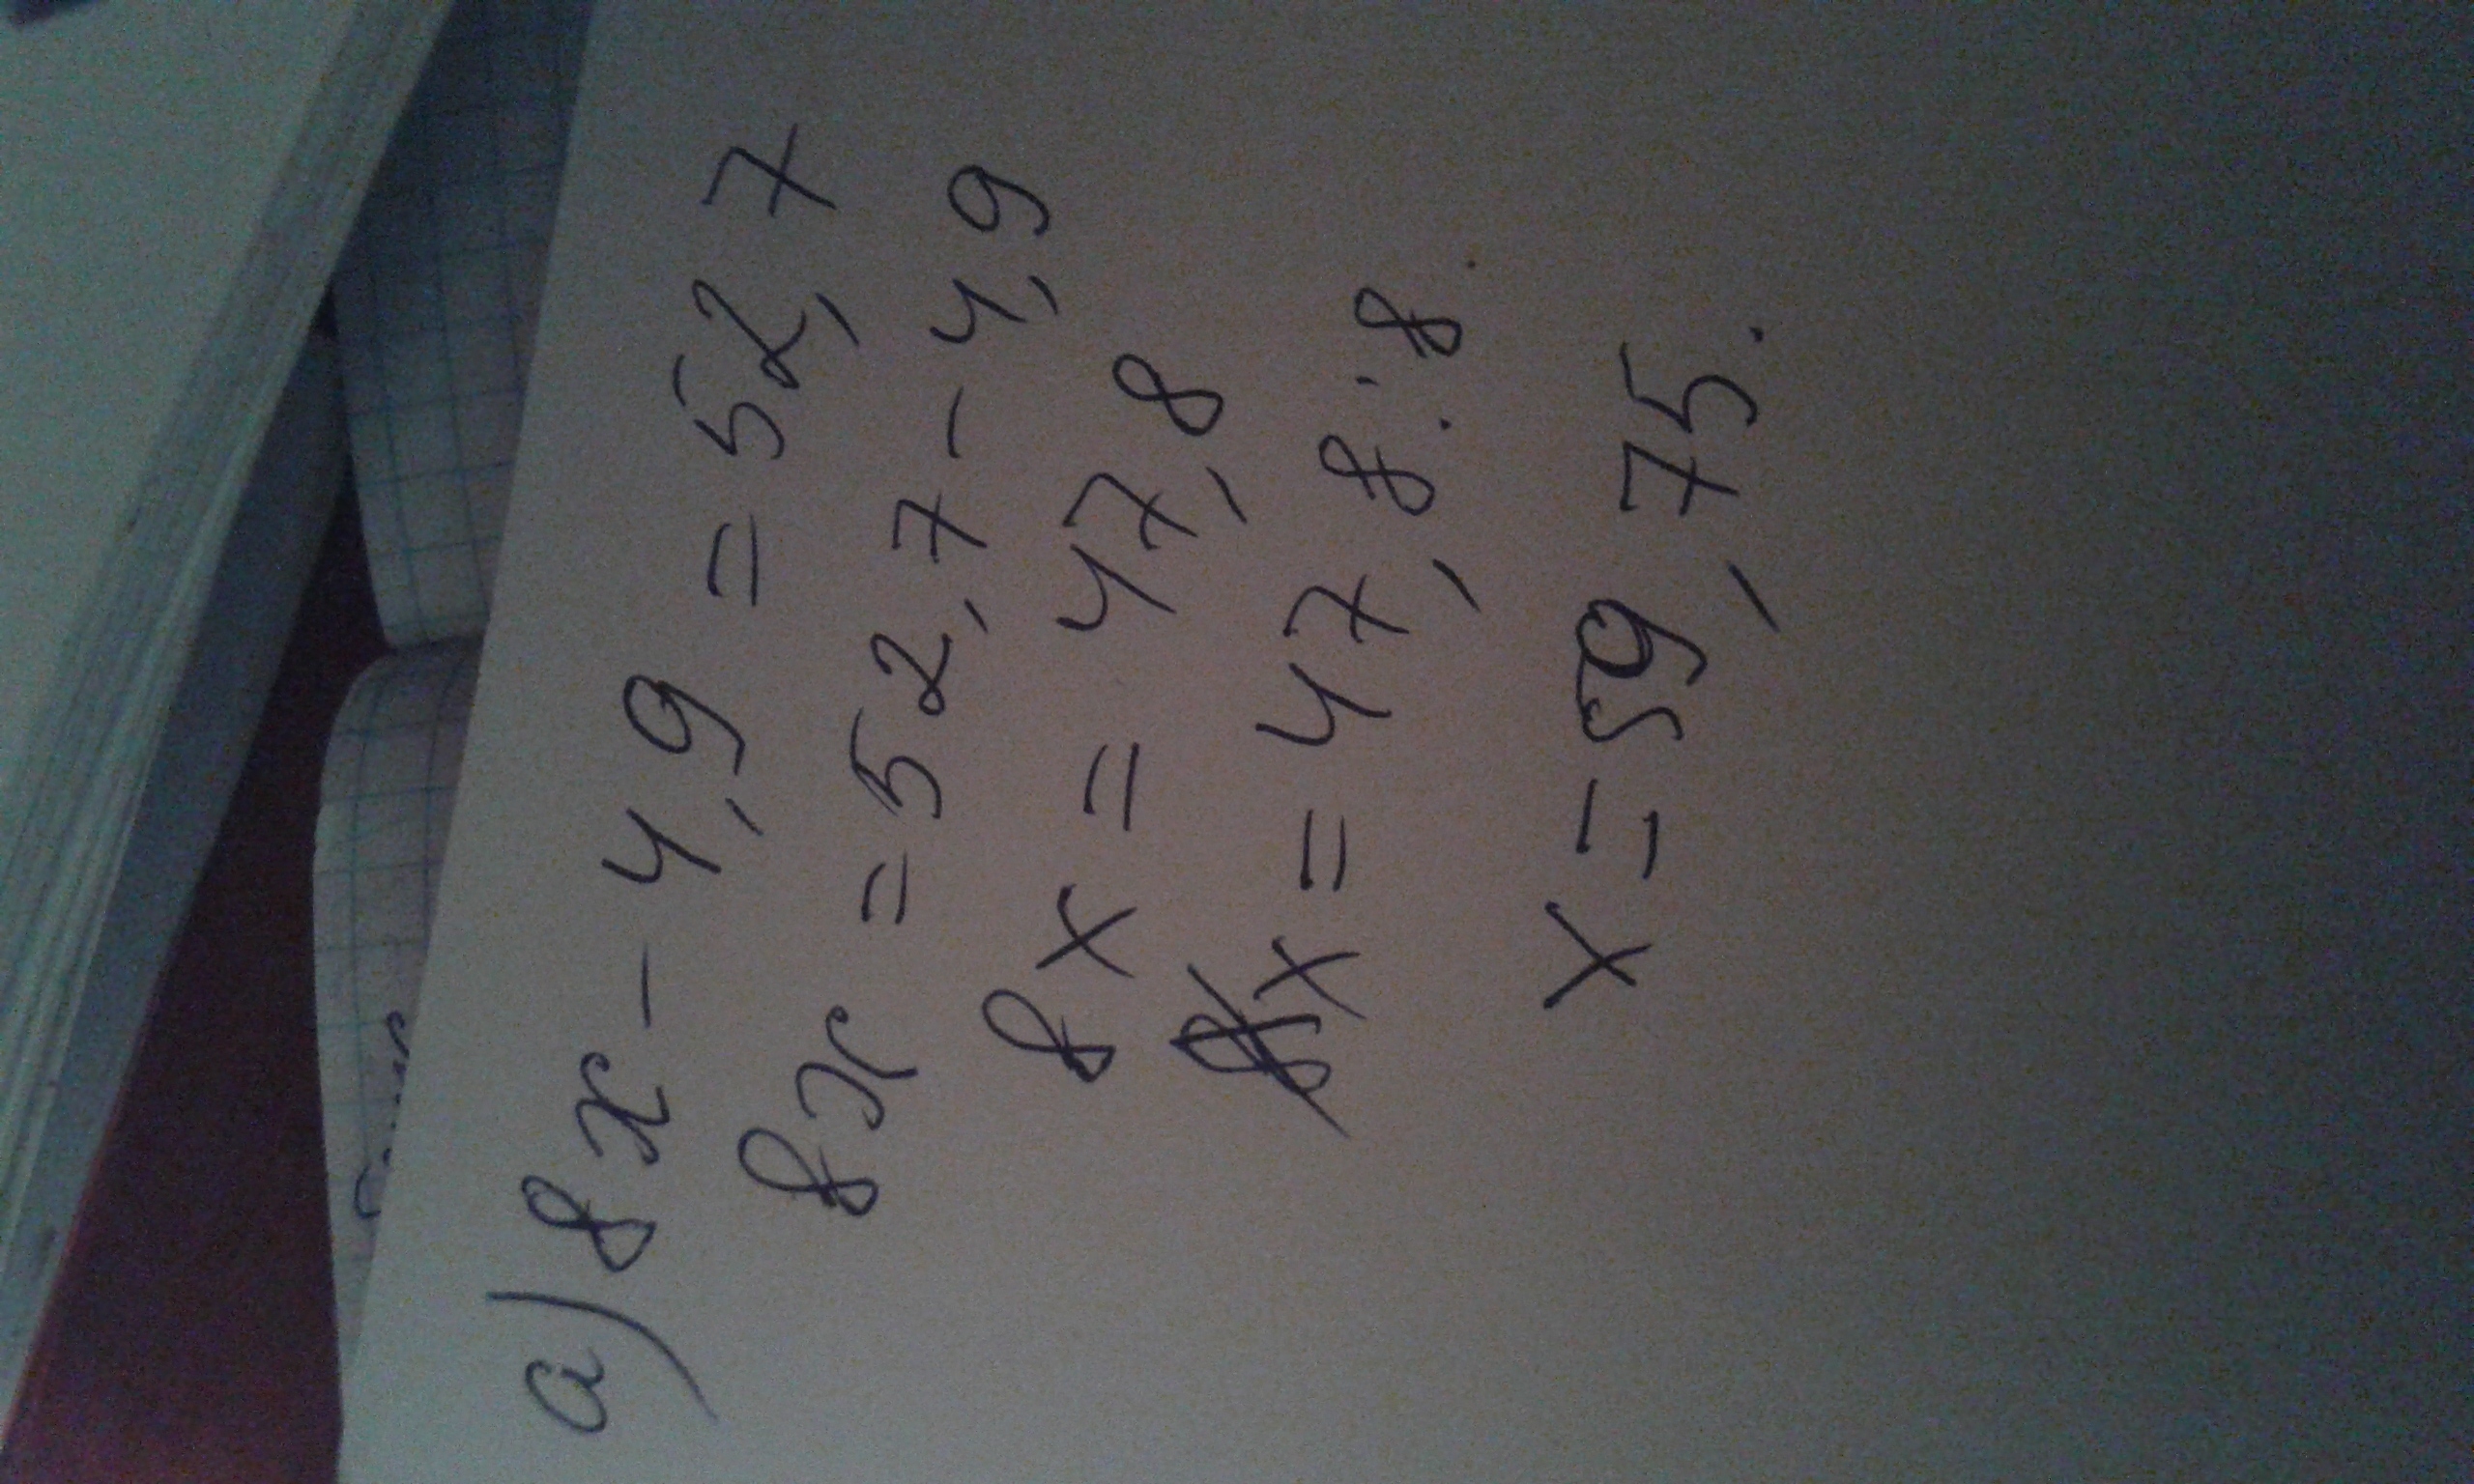 а) 8x - 4,9 = 52,7
8x = 52,7 - 4,9
8x = 47,8
x = 47,8 : 8.
x = 59,75.